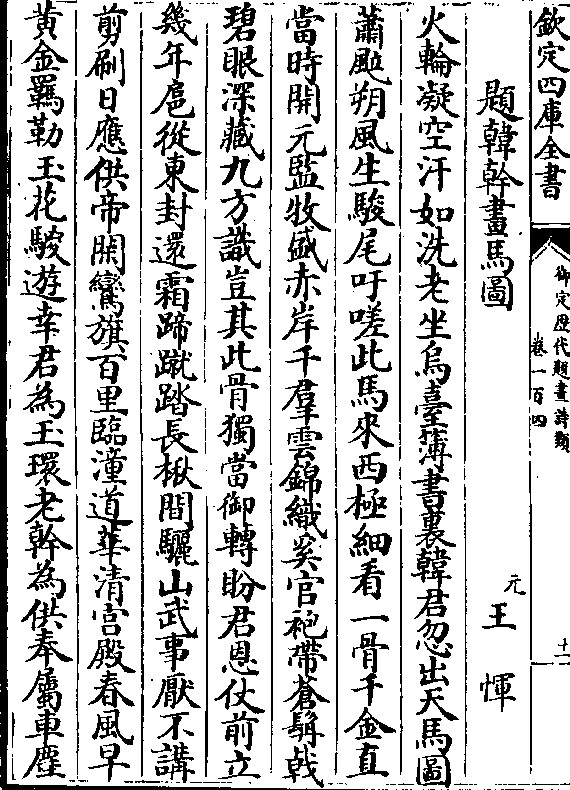 欽定四庫全書
御定歷代題畫詩類
卷一百四
十一
題韓幹畫馬圖
元
王惲
火輪凝空汗如洗老坐烏臺簿書裏韓君忽出天馬圖
蕭颯朔風生駿尾吁嗟此馬來西極細看一骨千金直
當時開元監牧盛赤岸千羣雲錦織奚官袍帶蒼髯戟
碧眼深藏九方識豈其此骨獨當御轉盼君恩仗前立
幾年扈從東封還霜蹄蹴踏長楸間驪山武事厭不講
剪刷日應供帝閑鸞旗百里臨潼道華清宫殿春風早
黃金羈勒玉花驄遊幸君為玉環老幹為供奉屬車塵